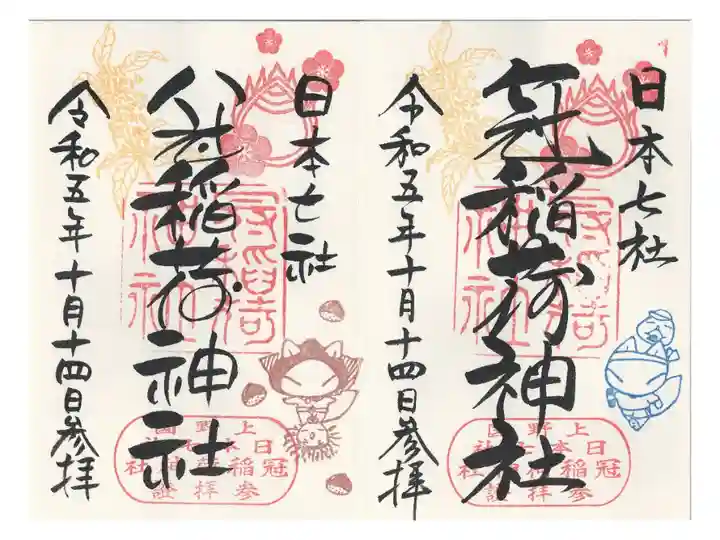 日本七社
稲荷神社
令和五年十月十四日参拝
上野國
日本七社
冠稲荷神社
參拝證
日本七社
稲荷神社
令和五年十月十四日参拝
上野國
日本七社
冠稲荷神社
參拝證